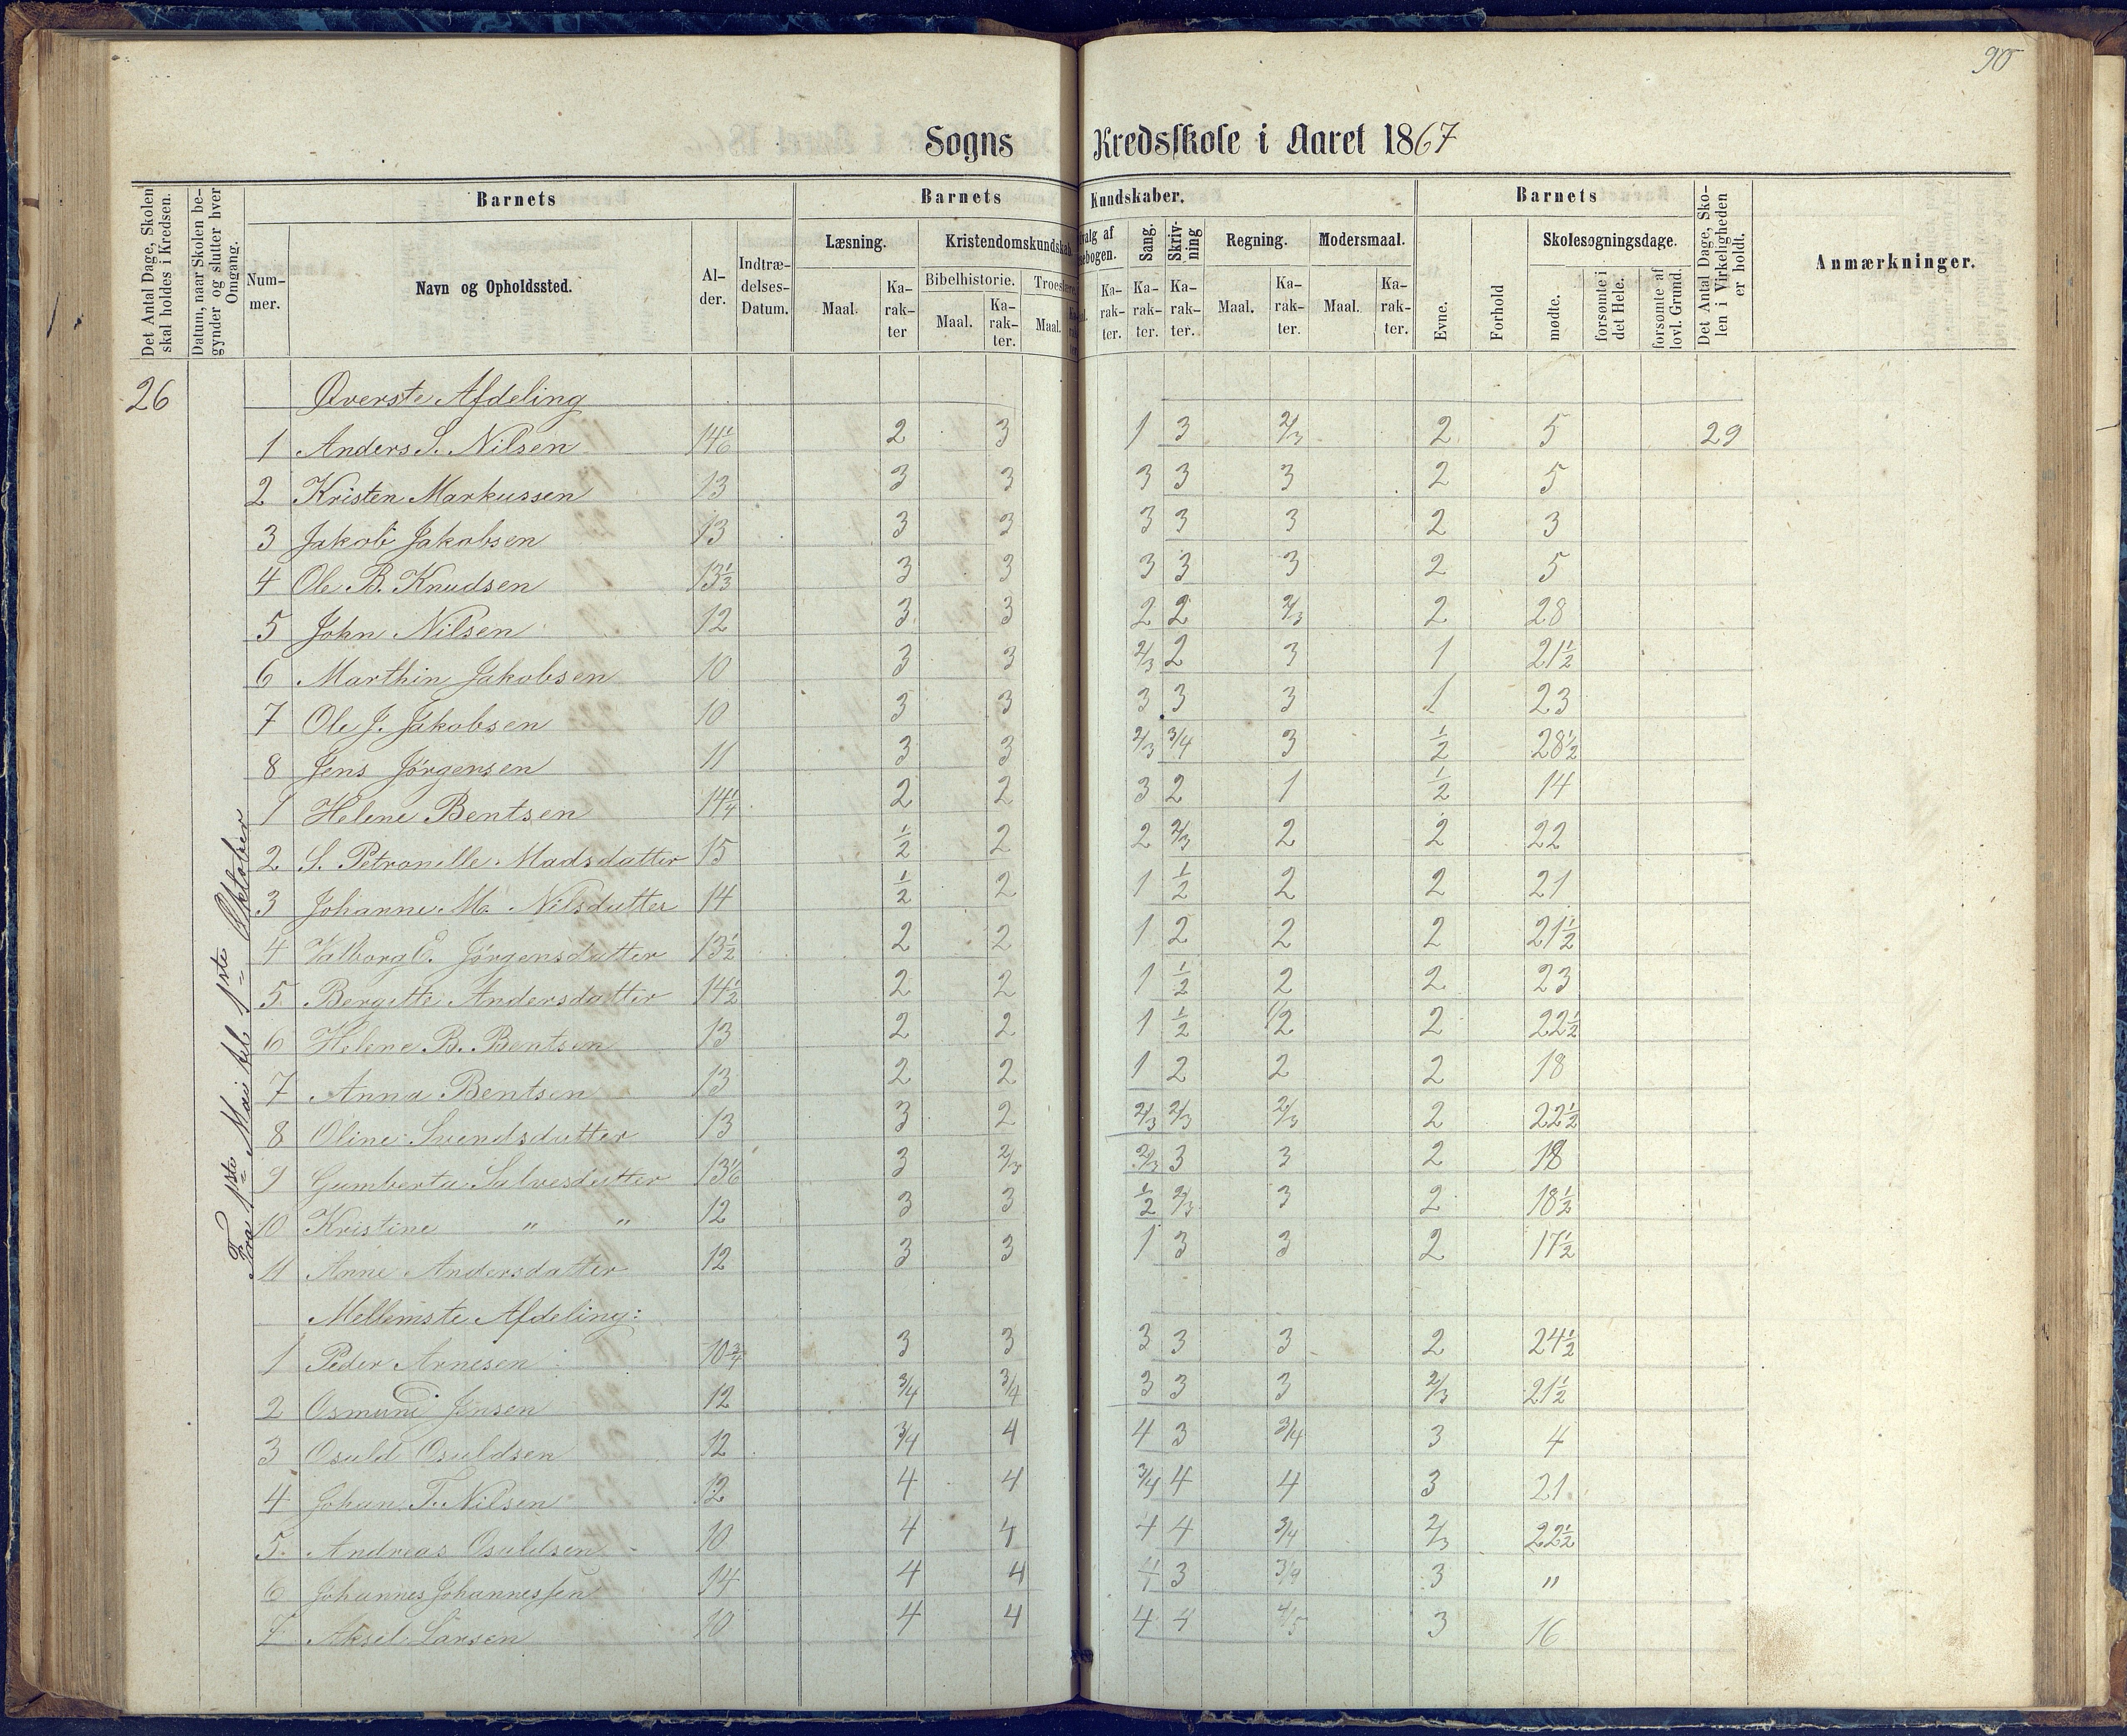 90
Sogns Kredsskole i Aaret 1867
Det Antal Dage, Skolen skal holdes i Kredsen.
Datum, naar Skolen begynder og slutter hver Omgang.
Barnets
Nummer.
Navn og Opholdssted.
Alder.
Indtrædelses-Datum.
Barnets Kundskaber.
Læsning.
Maal.
Karakter
Kristendomskundskab
Bibelhistorie.
Maal.
Karakter.
Troeslære
Maal.
Sang.
Karakter.
Skrivning
Karakter.
Regning.
Maal.
Karakter.
Modersmaal.
Maal.
Karakter.
Barnets
Evne.
Forhold
Skolesøgningsdage.
mødte.
forsømte i det Hele.
forsømte af lovl. Grund.
Det Antal Dage, Skolen i Virkeligheden er holdt.
Anmærkninger.
26
Fra 1ste Mai til 1ste Oktober
Øverste Afdeling
1 Anders S. Nilsen 14 1/6 2 3 1 3 2/3 2 5 29
2 Kristen Markussen 13 3 3 3 3 3 2 5
3 Jakob Jakobsen 13 3 3 3 3 3 2 3
4 Ole B. Knudsen 13 1/3 3 3 3 3 3 2 5
5 John Nilsen 12 3 3 2 2 2/3 2 28
6 Marthin Jakobsen 10 3 3 2/3 2 3 1 21 1/2
7 Ole J. Jakobsen 10 3 3 3 3 3 1 23
8 Jens Jørgensen 11 3 3 2/3 3/4 3 1/2 28 1/2
1 Helene Bentsen 14 1/4 2 2 3 2 1 1/2 14
2 S. Petronille Madsdatter 15 1/2 2 2 2/3 2 2 22
3 Johanne M. Nilsdatter 14 1/2 2 1 1/2 2 2 21
4 Valborg E. Jørgensdatter 13 1/2 2 2 1 2 2 2 21 1/2
5 Bergitte Andersdatter 14 1/2 2 2 1 1/2 2 2 23
6 Helene B. Bentsen 13 2 2 1 1/2 1/2 2 22 1/2
7 Anna Bentsen 13 2 2 1 2 2 2 18
8 Oline Svendsdatter 13 3 2 2/3 2/3 2/3 2 22 1/2
9 Gumberta Salvesdatter 13 1/6 3 2/3 2/3 3 3 2 18
10 Kristine " " 12 3 3 1/2 2/3 3 2 18 1/2
11 Anne Andersdatter 12 3 3 1 3 3 2 17 1/2
Mellemste Afdeling:
1 Peder Arnesen 10 3/4 3 3 3 3 3 2 24 1/2
2 Osmund Jensen 12 3/4 3/4 3 3 3 2/3 21 1/2
3 Osuld Osuldsen 12 3/4 4 4 3 3/4 3 4
4 Johan T. Nilsen 12 4 4 3/4 4 4 3 21
5 Andreas Osuldsen 10 4 4 4 4 3/4 2/3 22 1/2
6 Johannes Johannessen 14 4 4 3 3/4 3 "
7 Aksel Larsen 10 4 4 4 4 4/5 3 16